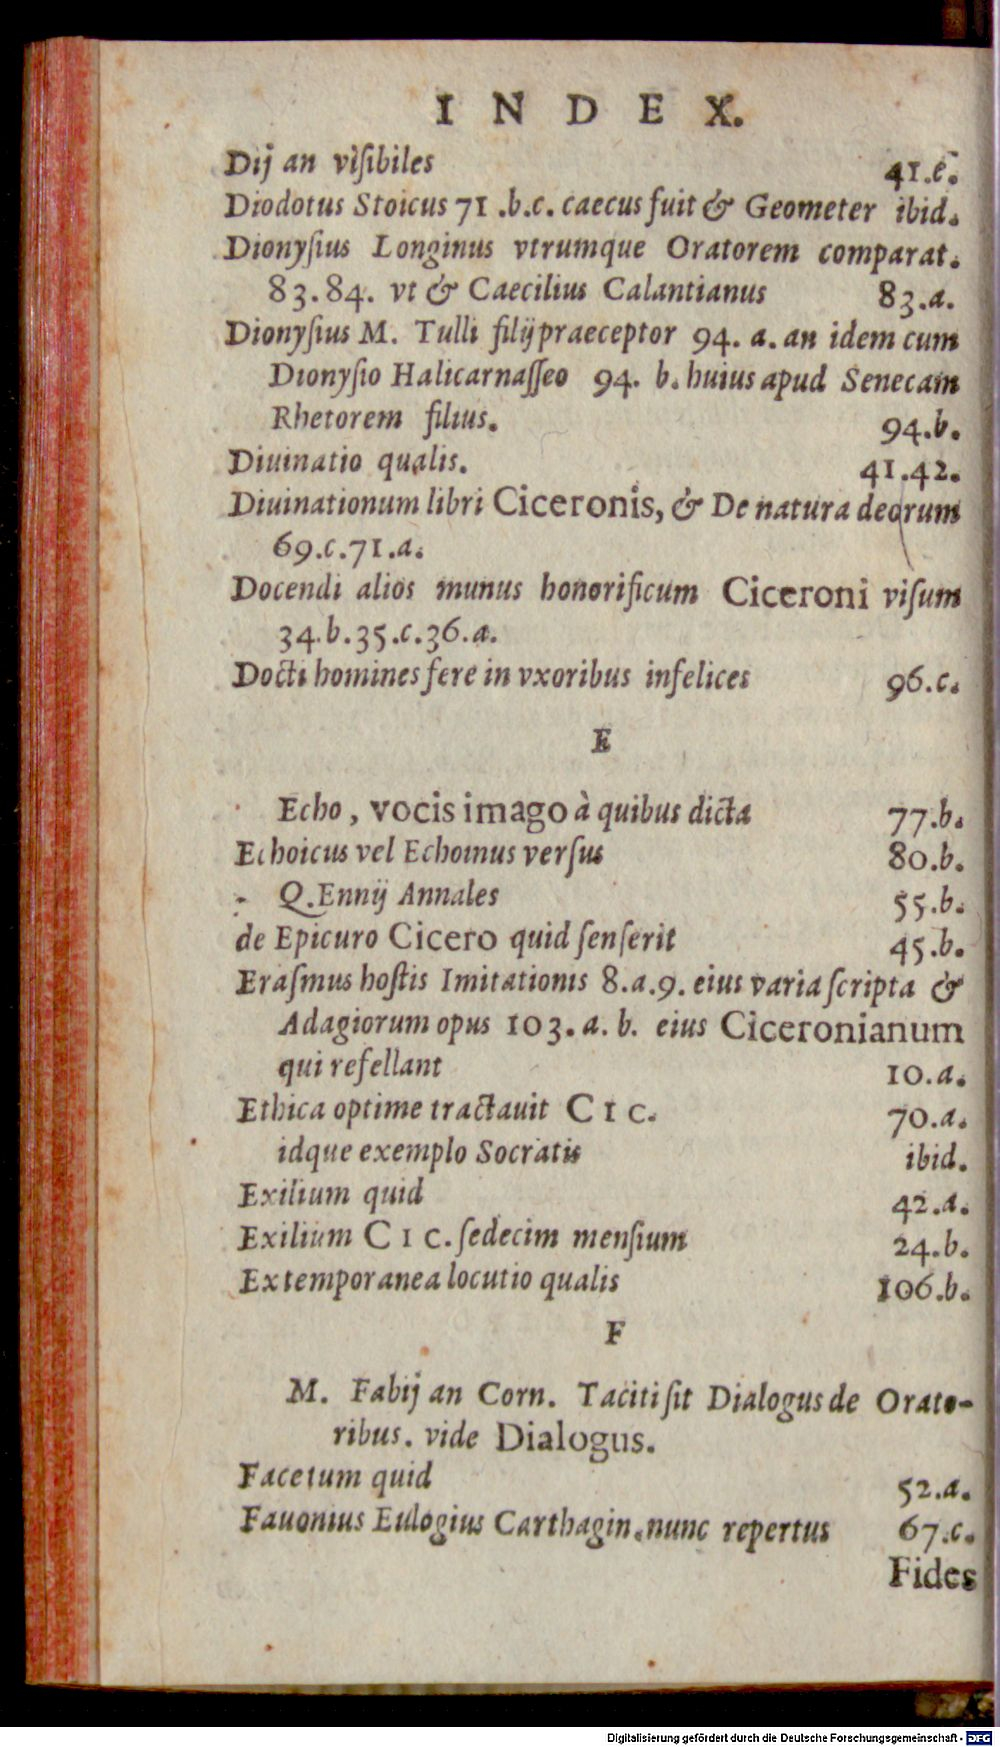 INDEX.
Dij an viſibiles 41.c.
Diodotus Stoicus 71 .b.c. caecus fuit & Geometer ibid.
Dionyſius Longinus vtrumque Oratorem comparat.
83.84. vt & Caecilius Calantianus 83.a.
Dionyſius M. Tulli filij praeceptor 94. a. an idem cum
Dionyſio Halicarnaſſeo 94. b. huius apud Senecam
Rhetorem filius. 94.b.
Diuinatio qualis. 41.42.
Diuinationum libri Ciceronis, & De natura deorum
69.c.71.a.
Docendi alios munus honorificum Ciceroni viſum
34.b.35.c.36.a.
Docti homines fere in vxoribus infelices 96.c.
E
Echo, vocis imago à quibus dicta 77.b.
Echoicus vel Echoinus verſus 80.b.
Q. Ennij Annales 55.b.
de Epicuro Cicero quid ſenſerit 45.b.
Eraſmus hoſtis Imitationis 8.a.9. eius varia ſcripta &
Adagiorum opus 103. a. b. eius Ciceronianum
qui refellant 10.a.
Ethica optime tractauit CIC. 70.a.
idque exemplo Socratis ibid.
Exilium quid 42.a.
Exilium CIC. ſedecim menſium 24.b.
Extemporanea locutio qualis 106.b.
F
M. Fabij an Corn. Taciti ſit Dialogus de Orato-
ribus. vide Dialogus.
Facetum quid 52.a.
Fauonius Eulogius Carthagin. nunc repertus 67.c.
Fides
Digitalisierung gefördert durch die Deutsche Forschungsgemeinschaft - DFG